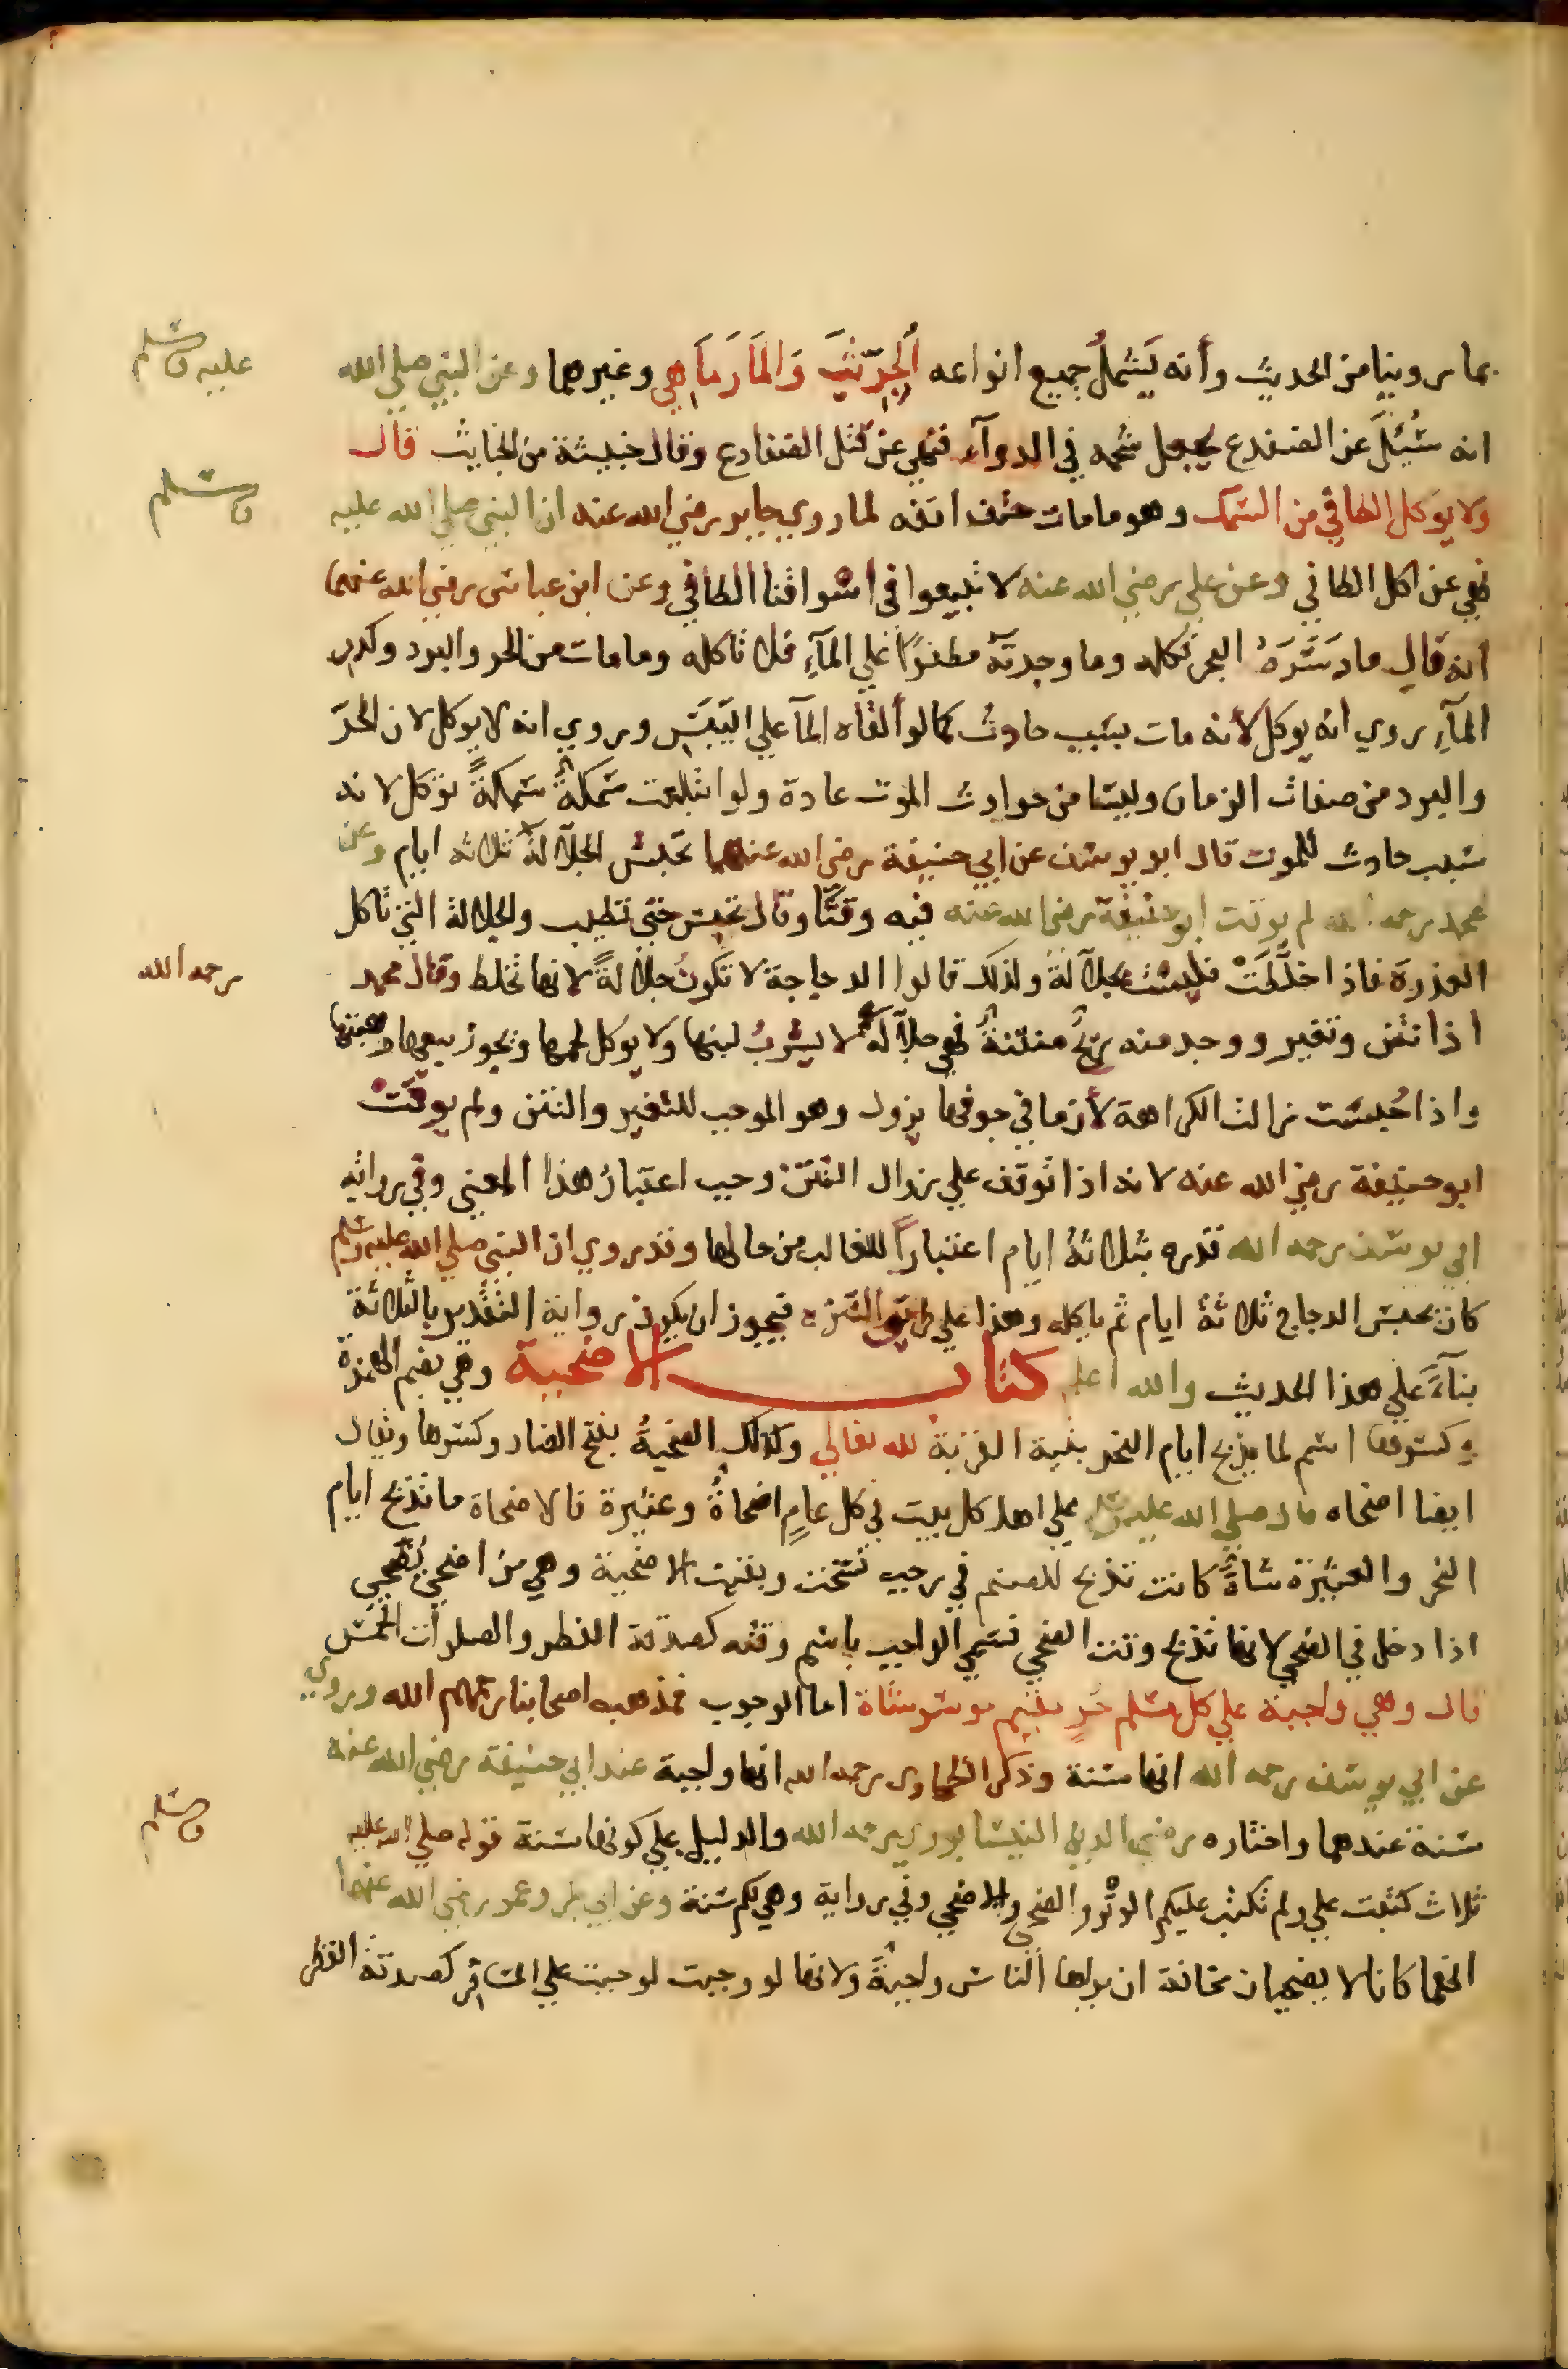 بما روينا من الحديث وأنه يَشملُ جميع انواعه الجِرّيثَ وَالمَارمَاهِي وغيرهما وعن النبي صلي الله
عليه وسلم
انه سُئِلَ عن الضفدع يجعل شحمه في الدوآء فنهي عن قتل الضفادع وقال خبيثة من الخبايث قال
ولا يوكل الطافي من السمك وهو ما مات حتف انفه لما روي جابر رضي الله عنه ان النبي صلي الله عليه
وسلم
نهي عن اكل الطافي وعن علي رضي الله عنه لا تبيعوا في اسواقنا الطافي وعن ابن عباس رضي الله عنهما
انه قال ما دَسَرَهُ البحر فكله وما وجدتَهُ مطفوًا علي المآءِ فلا تاكله وما مات من الحر والبرد وكدر
المآءِ روي انه يوكل لأنه مات بسبب حادث كما لو ألقاه المآ علي اليَبَسِ وروي انه لا يوكل لان الحرّ
والبرد من صفات الزمان وليسا من حوادث الموت عادة ولو ابتلعت سَمكةٌ سَمكةً توكل لانه
سبب حادث للموت قال ابو يوسف عن ابي حنيفة رضي الله عنهما تحبس الجلآلة ثلاثة ايام وعن
محمد رحمه الله لم يوقت ابو حنيفة رضي الله عنه فيه وقتًا وقال تحبس حتي تطيب والجلالة التي تاكل
العذرة فاذا خلَّطَتْ فليست بجلآلة ولذلك قالوا الدجاجة لا تكونُ جلآلةً لانها تخلط وقال محمد
رحمه الله
اذا نتن وتغير ووجد منه ريحٌ منتنةٌ فهي جلآلة لا يشربُ لبنها ولا يوكل لحمها ويجوز بيعها وهبتها
واذا حُبست زالت الكراهة لأن ما في جوفها يزول وهو الموجب للتغير والنتن ولم يوقتْ
ابو حنيفة رضي الله عنه لانه اذا توقف علي زوال النتن وجب اعتبارُ هذا المعني وفي رواية
ابي يوسف رحمه الله قدره بثلاثة ايام اعتبارًا للغالب من حالها وقد روي ان النبي صلي الله عليه وسلم
كان يحبس الدجاج ثلاثة ايام ثم ياكله وهذا علي طريق التنزه فيجوز ان يكون رواية التقدير بالثلاثة
بنآءً علي هذا الحديث والله اعلم كتاب الاضحية وهي بضم الهمزة
وكسرها اسم لما يذبح ايام النحر بنية القربة لله تعالي وكذلك الضحيةُ بفتح الضاد وكسرها ويقال
ايضا اضحاه قال صلي الله عليه وسلم علي اهل كل بيت في كل عامٍ اضحاةٌ وعتيرة فالاضحاة ما تذبح ايام
النحر والعتيرة شاةٌ كانت تذبح للصنم في رجب نسخت وبقيت الاضحية وهي من اضحي يُضحي
اذا دخل في الضحي لانها تذبح وقت الضحي فسمي الواجب باسم وقته كصدقة الفطر والصلوات الخمس
قال وهي واجبة علي كل مسلم حُرٍ مقيم موسر شاة اما الوجوب فمذهب اصحابنا رحمهم الله وروي
عن ابي يوسف رحمه الله انها سنة وذكر الطحاوي رحمه الله انها واجبة عند ابي حنيفة رضي الله عنه
سنة عندهما واختاره رضي الدين النيسابوري رحمه الله والدليل علي كونها سنة قوله صلي الله عليه
وسلم
ثلاث كتبت علي ولم تكتب عليكم الوتْر والضحي والاضحي وفي رواية وهي لكم سنة وعن ابي بكر وعمر رضي الله عنهما
انهما كانا لا يضحيان مخافة ان يراها الناس واجبةً ولانها لو وجبت لوجبت علي المسافر كصدقة الفطر